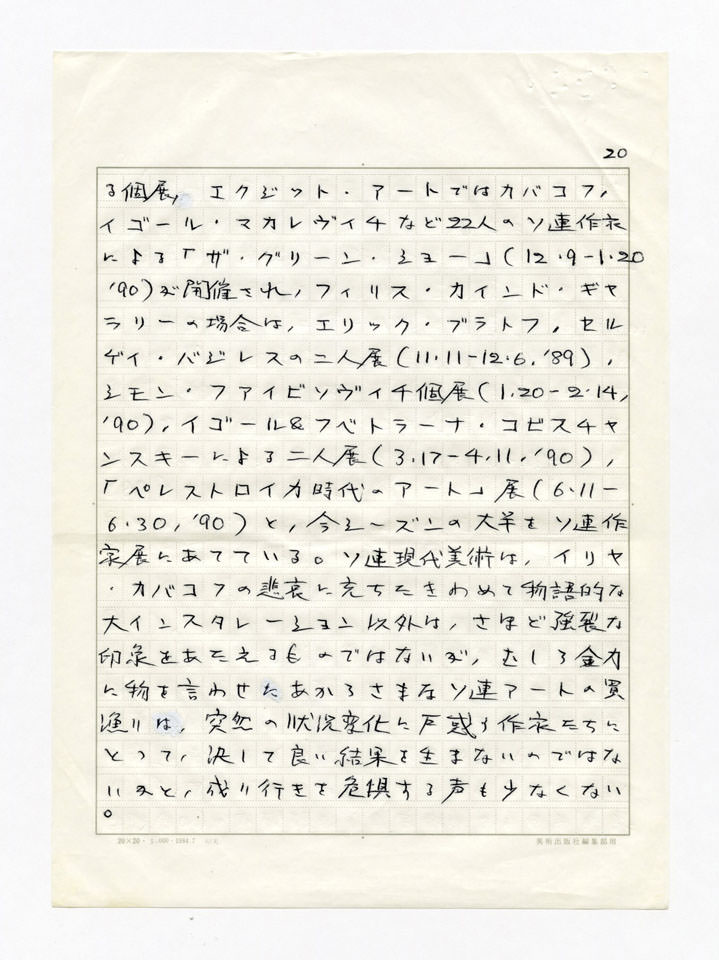 20
る個展、エクジット・アートではカバコフ、
イゴール・マカレヴィチなど22人のソ連作家
による「ザ・グリーン・ショー」(12・9-1・20
'90)が開催され、フィリス・カインド・ギャ
ラリーの場合は、エリック・ブラトフ、セル
ゲイ・バジレスの二人展(11・11-12・6,'89)、
シモン・ファイビソヴィチ個展(1・20-2・14,
'90)、イゴール&スベトラーナ・コピスチャ
ンスキーによる二人展(3・17-4・11,'90)、
「ペレストロイカ時代のアート」展(6・11-
6・30,'90)と、今シーズンの大半をソ連作
家展にあてている。ソ連現代美術は、イリヤ
・カバコフの悲哀に充ちたきわめて物語的な
大インスタレーション以外は、さほど強烈な
印象をあたえるものではないが、むしろ金力
に物を言わせたあからさまなソ連アートの買
漁りは、突然の状況変化に戸惑う作家たちに
とって、決して良い結果を生まないのではな
いかと、成り行きを危惧する声も少なくない
。
20×20・5,000・1984.7
美術出版社編集部用